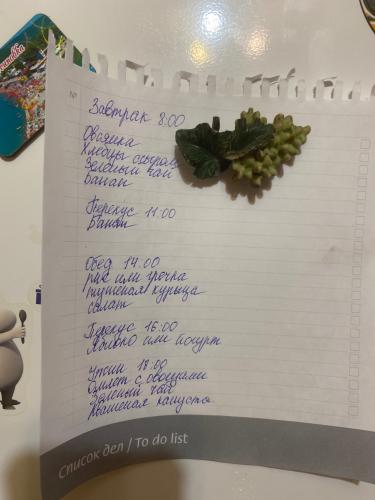 №
Завтрак 8:00
Овсянка
Хлебцы с сыром
Зеленый чай
Банан
Перекус 11:00
Банан
Обед 14.00
рис или гречка
тушеная курица
салат
Перекус 16:00
Яблоко или йогурт
Ужин 18:00
Омлет с овощами
Зеленый чай
Квашеная капуста
Список дел / To do list